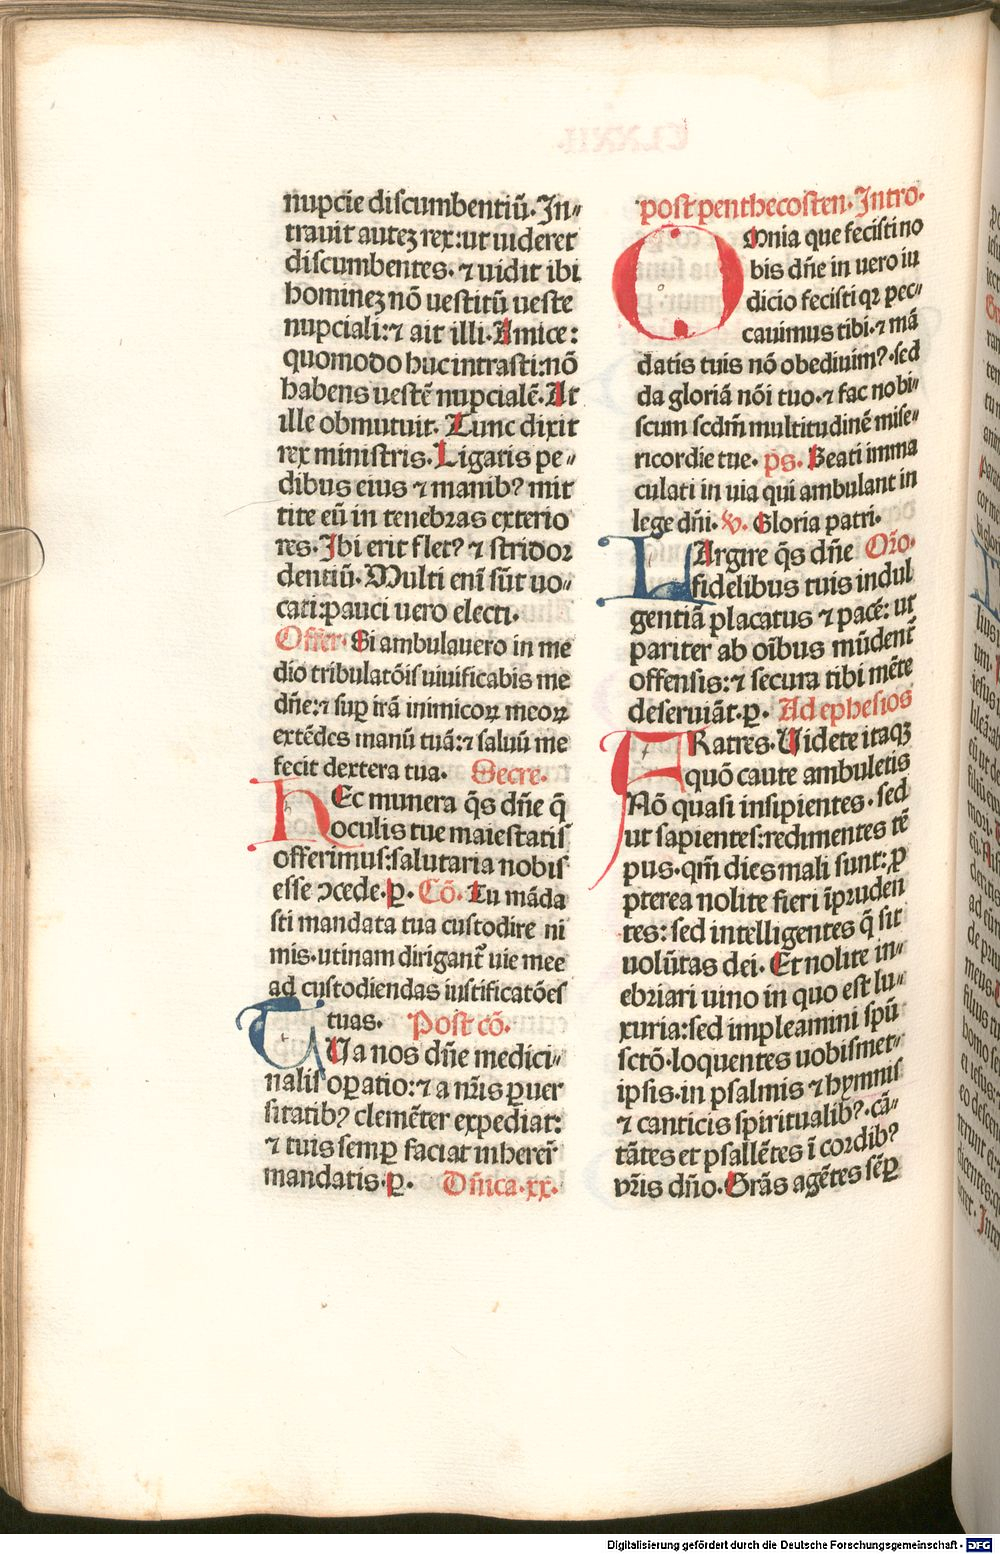 nupcie discumbentiũ. In⸗
trauit autez rex: ut uideret
discumbentes. ⁊ uidit ibi
hominez nõ uestitũ ueste
nupciali: ⁊ ait illi. Amice:
quomodo huc intrasti: nõ
habens uestẽ nupcialẽ. At
ille obmutuit. Tunc dixit
rex ministris. Ligatis pe⸗
dibus eius ⁊ manibꝰ mit
tite eũ in tenebras exterio
res. Ibi erit fletꝰ ⁊ stridor
dentiũ. Multi eni sũt uo⸗
cati: pauci uero electi.
Offer. Si ambulauero in me
dio tribulatõis uiuificabis me
dñe: ⁊ suꝑ irã inimicoꝝ meoꝝ
extẽdes manũ tuã: ⁊ saluũ me
fecit dextera tua. Secre.
HEc munera q̃s dñe q̃
oculis tue maiestatis
offerimus: salutaria nobis
esse ↄcede. ꝑ. Cõ. Tu mãda
sti mandata tua custodire ni
mis. utinam dirigant̃ uie mee
ad custodiendas iustificatões
tuas. Post cõ.
TUa nos dñe medici⸗
nalis oꝑatio: ⁊ a nr̃is ꝑuer
sitatibꝰ clemẽter expediat:
⁊ tuis semꝑ faciat inherer̃
mandatis. ꝑ. Dñica. xx.
post penthecosten. Intro.
OMnia que fecisti no
bis dñe in uero iu
dicio fecisti qꝛ pec⸗
cauimus tibi. ⁊ mã
datis tuis nõ obediuimꝰ. sed
da gloriã nõi tuo. ⁊ fac nobi⸗
scum scdm̃ multitudinẽ mise⸗
ricordie tue. ps. Beati imma
culati in uia qui ambulant in
lege dñi. v. Gloria patri.
LArgire q̃s dñe Orõ.
fidelibus tuis indul
gentiã placatus ⁊ pacẽ: ut
pariter ab oĩbus mũdent̃
offensis: ⁊ secura tibi mẽte
deseruiãt. ꝑ. Ad ephesios
FRatres. Uidete itaqꝫ
quõ caute ambuletis
Nõ quasi insipientes. sed
ut sapientes: redimentes tẽ
pus. qm̃ dies mali sunt: ꝓ
pterea nolite fieri ĩpruden
tes: sed intelligentes q̃ sit
uolũtas dei. Et nolite in⸗
ebriari uino in quo est lu⸗
xuria: sed impleamini spũ
sctõ. loquentes uobismet⸗
ipsis. in psalmis ⁊ hymnis
⁊ canticis spiritualibꝰ. cã⸗
tãtes et psallẽtes ĩ cordibꝰ
vr̃is dño. Grãs agẽtes sẽꝑ
Digitalisierung gefördert durch die Deutsche Forschungsgemeinschaft - DFG